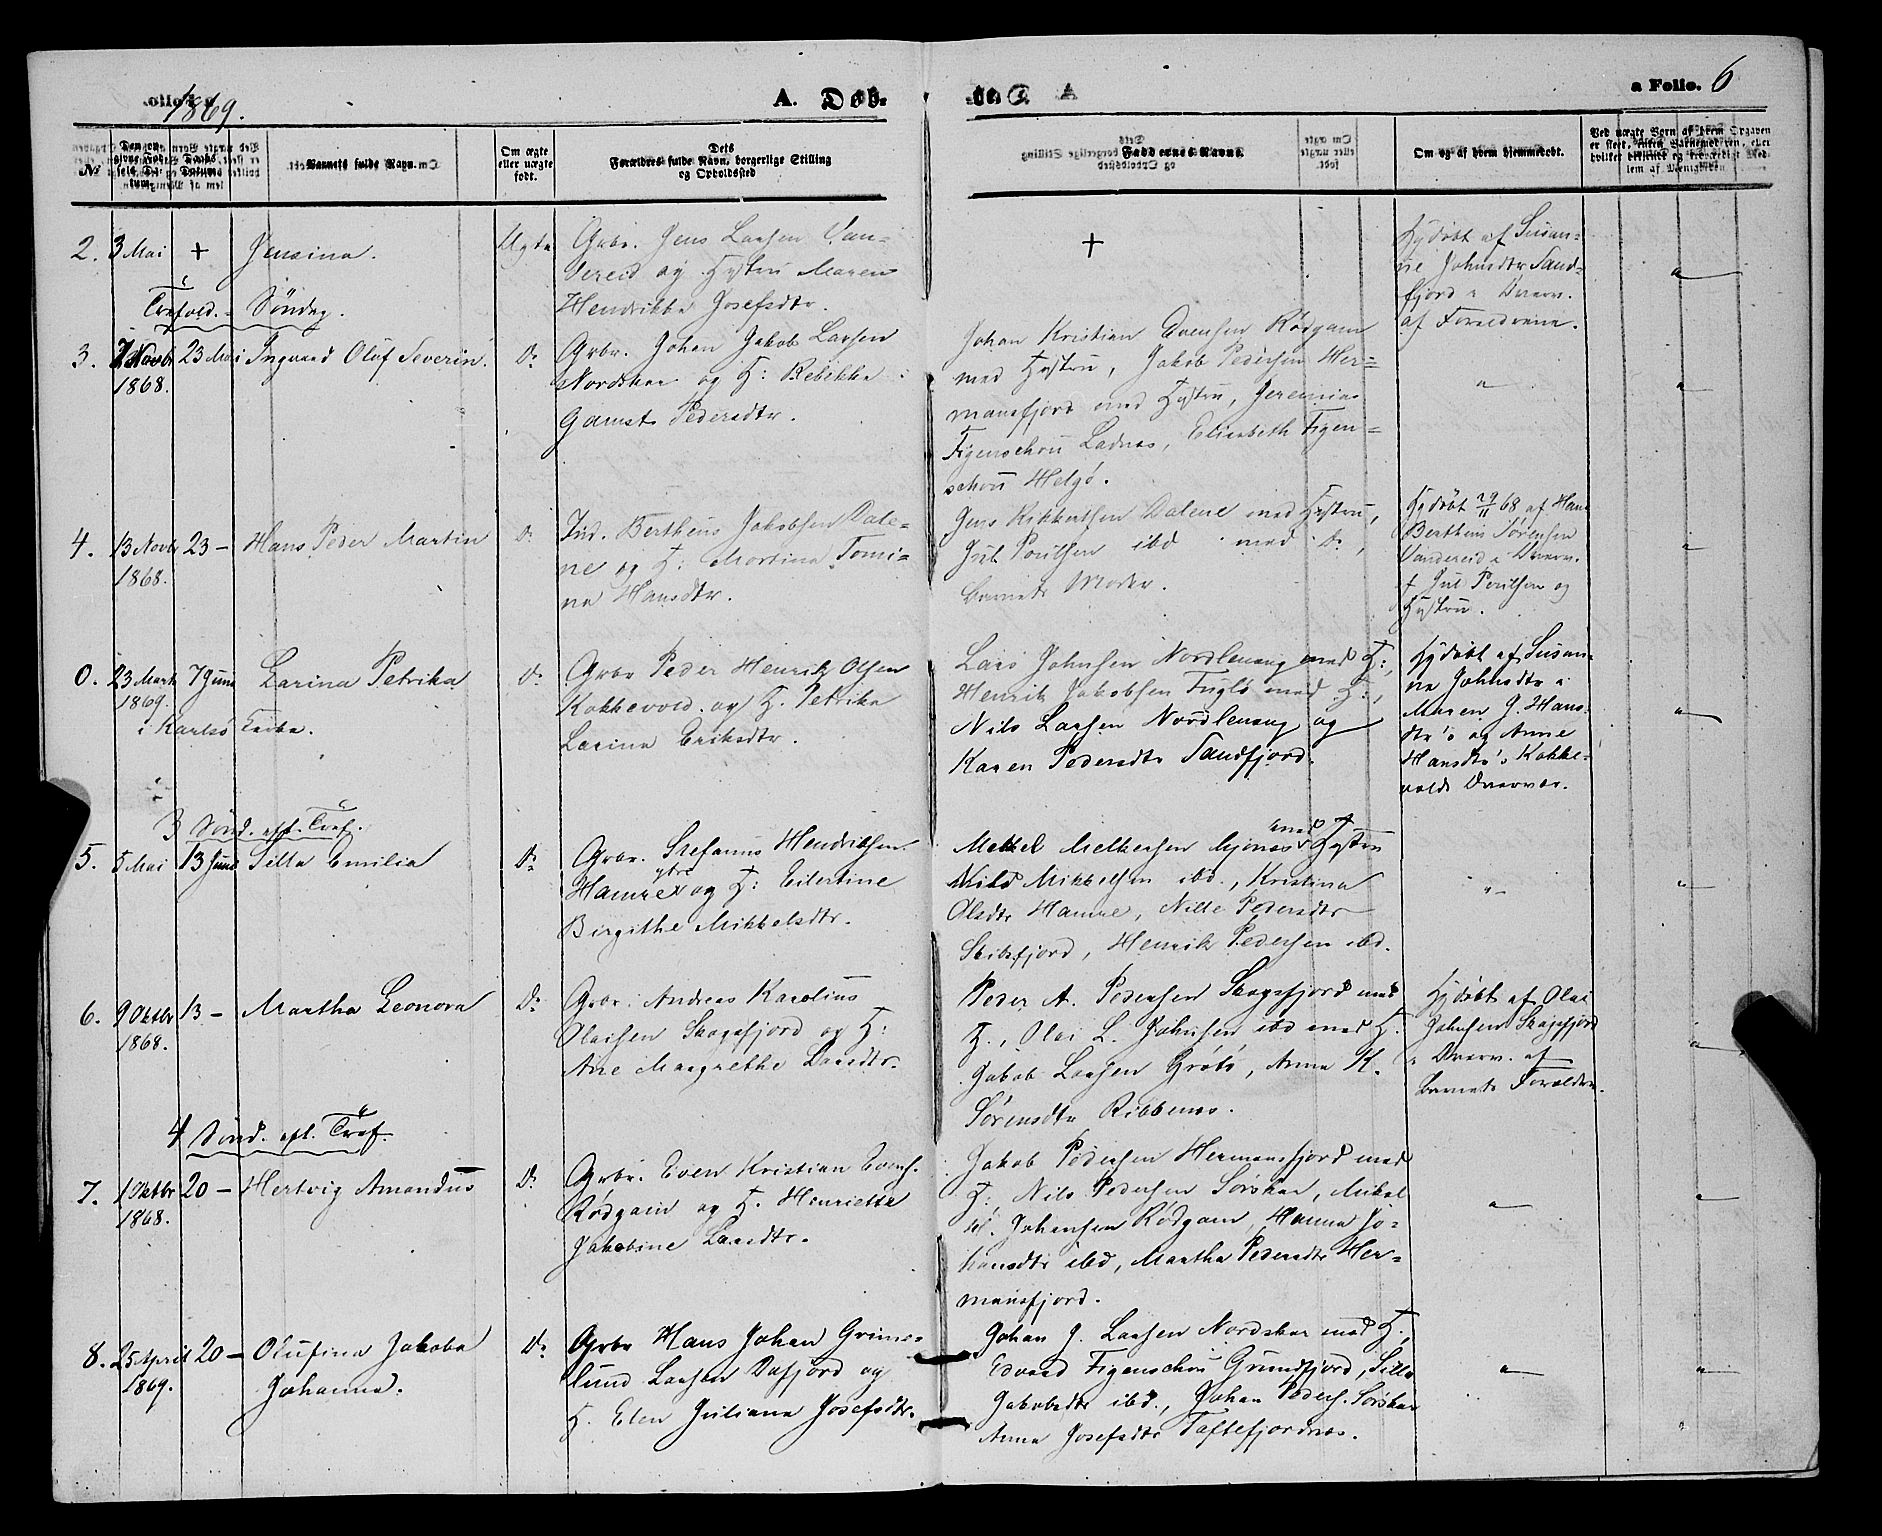 1869.
A. Døb.
a Folio. 6
No
Barnets fulde Navn.
Om ægte eller uægte født.
Dets Forældres fulde Navn, borgerlige Stilling og Opholdssted
Faddernes Navne.
Om og af hvem hjemmedøbt.
2. 3 Mai + Jensina. Ugte
Grbr. Jens Larsen Van-
dereid og Hystru Maren
Hendrikka Josefsdtr.
+
Hjdøbt af Susan-
ne Johnsdtr Sand-
fjord
af Forældrene.
Trefold. Søndag.
3. 7 Novbr 1868. 23 Mai Ingvard Oluf Severin. Do
Grbr. Johan Jakob Larsen
Nordskar og H: Rebekka
Gamst Pedersdtr.
Johan Kristian Evensen Rødgam
med Hystru, Jakob Pedersen Her-
mansfjord med Hystru, Jeremias
Figenschou Ladnes, Elisabeth Figen-
schou Helgø.
4. 13 Novbr 1868. 23 - Hans Peder Martin Do
Ind. Bertheus Jakobsen Dale-
ne og H: Martina Tomi-
na Hansdtr.
Jens Rikkertsen Dalene med Hystru,
Jul Poulsen ibd med do,
barnets Moder.
Hjdøbt 29/11 68 af Hans
Bertheus Sørensen
Vandereid
af Jul Poulsen og
Hystru.
0. 23 Marts 1869. 7 Juni Larina Petrika Do
i Karlsø Kirke.
Grbr Peder Henrik Olsen
Kokkevold og H. Petrika
Larina Eriksdtr.
Lars Johnsen Nordlenang med H:,
Henrik Jakobsen Fuglø med H:,
Nils Larsen Nordlenang og
Karen Pedersdtr Sandfjord.
Hjdøbt af Susan-
ne Johnsdtr i
Maren J. Hans-
dtr's og Anne
Hansdtr's Kokke-
volds Overvær.
3 Sönd. eft. Tref.
5. 5 Mai 13 Juni Silla Emilia Do
Grbr. Stefanus Hendriksen
Hamre ytre og H: Eilertine
Birgithe Mikkelsdtr.
Mekkel Melkersen Mjønes med Hystru
Nils Mikkelsen ibd., Kristina
Olsdtr Hamre, Nille Pedersdtr
Skibsfjord, Henrik Pedersen ibd.
6. 9 Oktbr 1868. 13 - Martha Leonora Do
Grbr. Andreas Karolius
Olaisen Skogsfjord og H:
Ane Margrethe Larsdtr.
Peder A. Pedersen Skogsfjord med
H., Olai L. Johnsen ibd med H.
Jakob Larsen Grøtø, Anna K.
Sørensdtr Ribbenes.
Hjdøbt af Olai
Johnsen Skogsfjord
i Overv. af
barnets Forældre.
4 Sönd. eft. Tref.
7. 1 Oktbr 1868. 20 - Hertvig Amandus Do
Grbr. Even Kristian Evens.
Rødgam og H. Henriette
Jakobine Larsdtr.
Jakob Pedersen Hermansfjord med
H:, Nils Pedersen Sørskar, Mikal
Johansen Rødgam, Hanna Jo-
hansdtr ibd, Martha Pedersdtr Her-
mansfjord.
8. 25 April 1869. 20 - Olufina Jakoba
Johanna. Do
Grbr Hans Johan Grims-
lund Larsen Dafjord og
H. Elen Juliana Josefsdtr.
Johan J. Larsen Nordskar med H.,
Edvard Figenschou Grundfjord, Silla
Jakobsdtr ibd., Johan Peders. Sørskar
Anna Josefsdtr Toftefjordnes.